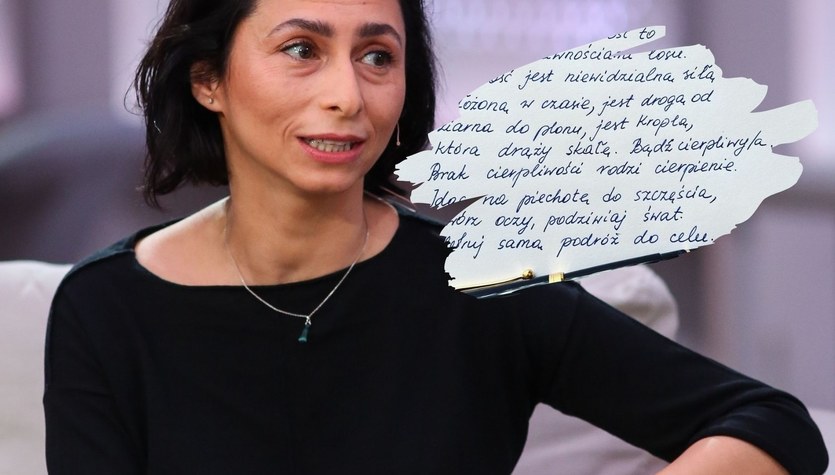 to
losu.
jest niewidzialną siłą
w czasie, jest drogą od
do plonu, jest kroplą,
która drąży skałę. Bądź cierpliwy/a.
Brak cierpliwości rodzi cierpienie.
Idąc na piechotę do szczęścia,
oczy, podziwiaj świat.
samą podróż do celu.